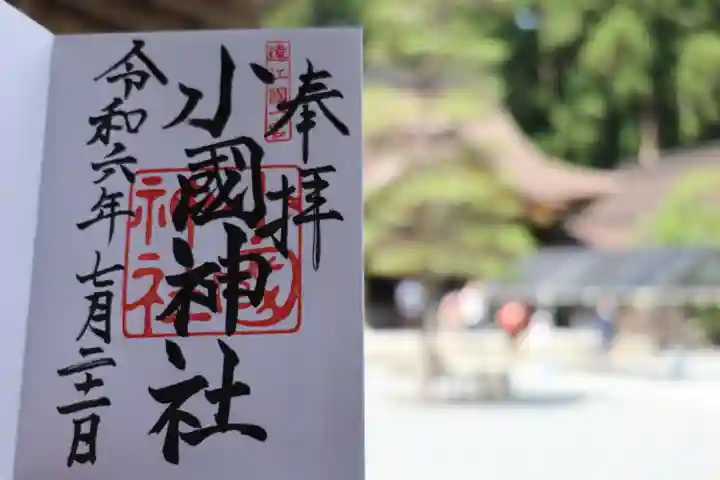 奉拝
遠江國一宮
小國神社
小國
神社
令和六年七月二十一日